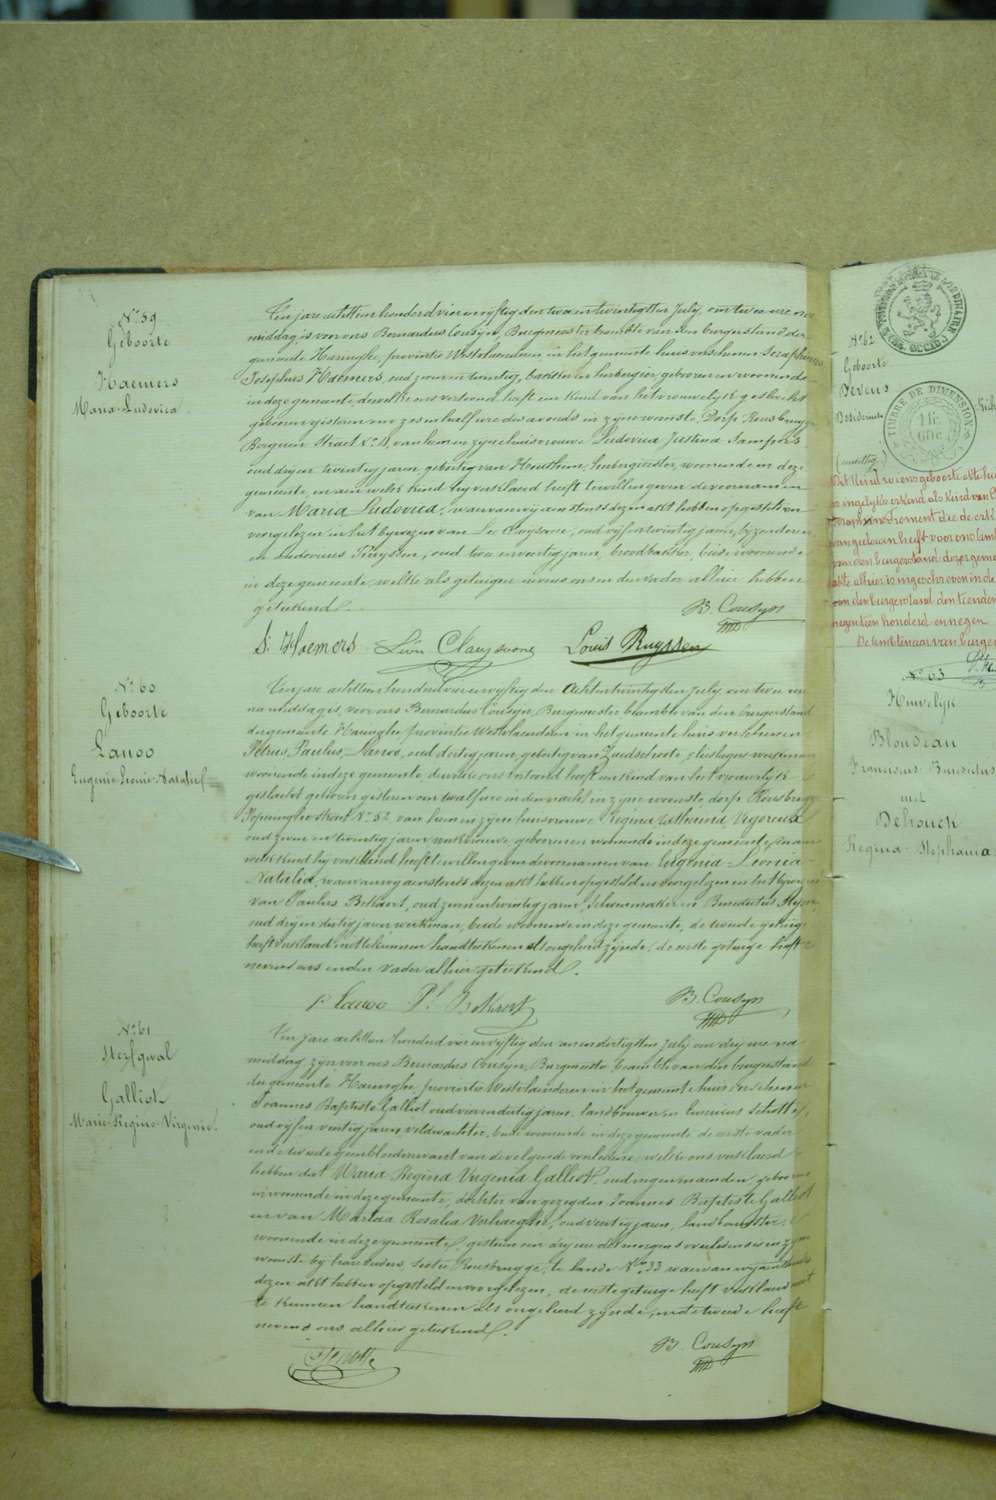 N.° 59
Geboorte
Haemers
Maria-Ludovica
Ten jare achttien honderd vier en vyftig den twee en twintigsten July, om twee ure na
middag, is voor ons Bernardus Cousyn, Burgmeester beambte van den burgerstand der
gemeente Haringhe, provintie Westvlaenderen, in het gemeente huis verschenen Seraphinus
Josephus Haemers, oud zeven en twintig, bakker en herbergier, geboren en woonende
in deze gemeente, dewelke ons vertoond heeft een kind van het vrouwelyk geslacht
geboren gisteren om zes en half ure des avonds in zyne woonste, Dorp Rousbrugge
Berguen Straet N.° 4, van hem en zyne huisvrouwe Ludovica Justina Sampers
oud dry en twintig jaren, geboortig van Houthem, herbergierster, woonende in deze
gemeente, en aen welk kind hy verklaerd heeft te willen geven de voornamen
van Maria Ludovica, waervan wy aenstonds dezen akt hebben opgesteld en
voorgelezen in het bywezen van Leo Claysoone, oud vyf en twintig jaren, byzonderen
en Ludovicus Ruyssen, oud twee en veertig jaren, broodbakker, beide woonende
in deze gemeente, welke als getuigen nevens ons en den vader alhier hebben
geteekend.
B. Cousyn
S: Haemers Léon Claysoone Louis Ruyssen
N.° 60
Geboorte
Lanoo
Eugenie Leonie Natalie
Ten jare achttien honderd vier en vyftig den Achtentwintigsten July, om twee ure
na middag is, voor ons Bernardus Cousyn, Burgmeester beambte van den burgerstand
der gemeente Haringhe, provintie Westvlaenderen in het gemeente huis verschenen
Petrus, Paulus, Lanoo, oud dertig jaren, geboortig van Zuudschoote, werkman
woonende in deze gemeente, dewelke ons vertoond heeft een kind van het vrouwelyk
geslacht geboren gisteren om twalf ure in den nacht, in zyne woonste dorp Rousbrugge
Poperinghe straet N.° 52 van hem en zyne huisvrouwe Regina Catherina Vigoreux
oud zeven en twintig jaren werkvrouwe, geboren en woonende in deze gemeente, en aen
welk kind hy verklaerd heeft te willen geven de voornamen van Eugenia Leonia
Natalia, waervan wy aenstonds dezen akt hebben opgesteld en voorgelezen in het bywezen
van Paulus Bekaert, oud zeven en twintig jaren, schoenmaker en Benedictus
oud dry en dertig jaren werkman, beide woonende in deze gemeente, de tweede getuige
heeft verklaerd niet te kunnen handteekenen als ongeleerd zynde, de eerste getuige heeft
nevens ons en den vader alhier geteekend.
P. Lanoo P.l Bekaert B. Cousyn
N.° 61
Sterfgeval
Galliot
Marie-Regine-Virginie.
Ten jare achttien honderd vier en vyftig den een en dertigsten July om dry ure na
middag zyn voor ons Bernardus Cousyn, Burgmeester, beambte van den burgerstand
der gemeente Haringhe, provintie Westvlaenderen in het gemeente huis verschenen
Joannes Baptiste Galliot oud vier en dertig jaren, landbouwer, en
oud vyf en veertig jaren, veldwachter, beide woonende in deze gemeente de eerste vader
en de tweede gebuer van de volgende overledene, welke ons verklaerd
hebben dat Maria Regina Virginia Galliot, oud negen maenden, geboren
en woonende in deze gemeente, dochter van gezegden Joannes Baptiste Galliot
en van Maria Rosalia Verhaeghe, oud veertig jaren, landbouwster,
woonende in deze gemeente, gisteren om dry ure des morgens overleden is in zyne
woonste by haer ouders, sectie Rousbrugge, te lande N.° 33 waervan wy aenstonds
dezen akt hebben opgesteld en voorgelezen, de eerste getuige heeft verklaerd niet
te kunnen handteekenen als ongeleerd zynde, en de tweede heeft
nevens ons alhier geteekend.
B. Cousyn
N.° 62
Geboorte
TIMBRE DE DIMENSION
1 fr.
60 c.
Het kind wiens geboorte akte hier
N.° 63
Huwelijk
Blondeau
Franciscus Benedictus
met
Dehouck
Regina Stephania